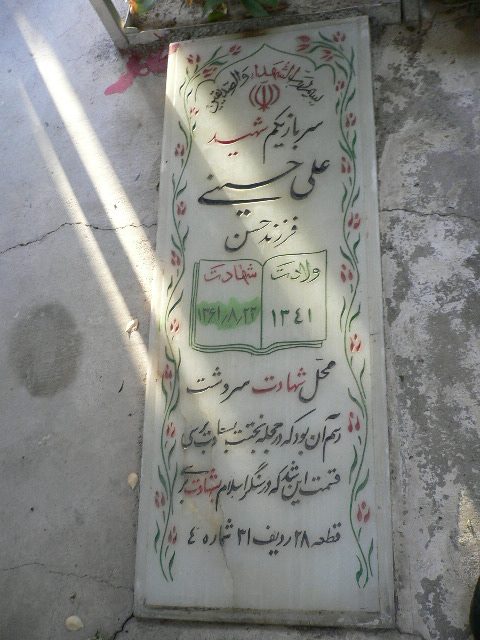 بسم رب الشهداء والصدیقین
سرباز یکم شهید
علی حسینی
فرزند حسن
ولادت شهادت
۱۳۴۱ ۱۳۶۱/۸/۲۲
محل شهادت سردشت
رسم آن بود که در حجله بختت ببری
قسمت این شد که در سنگر اسلام شهادت ببری
قطعه ۲۸ ردیف ۳۱ شماره ۴